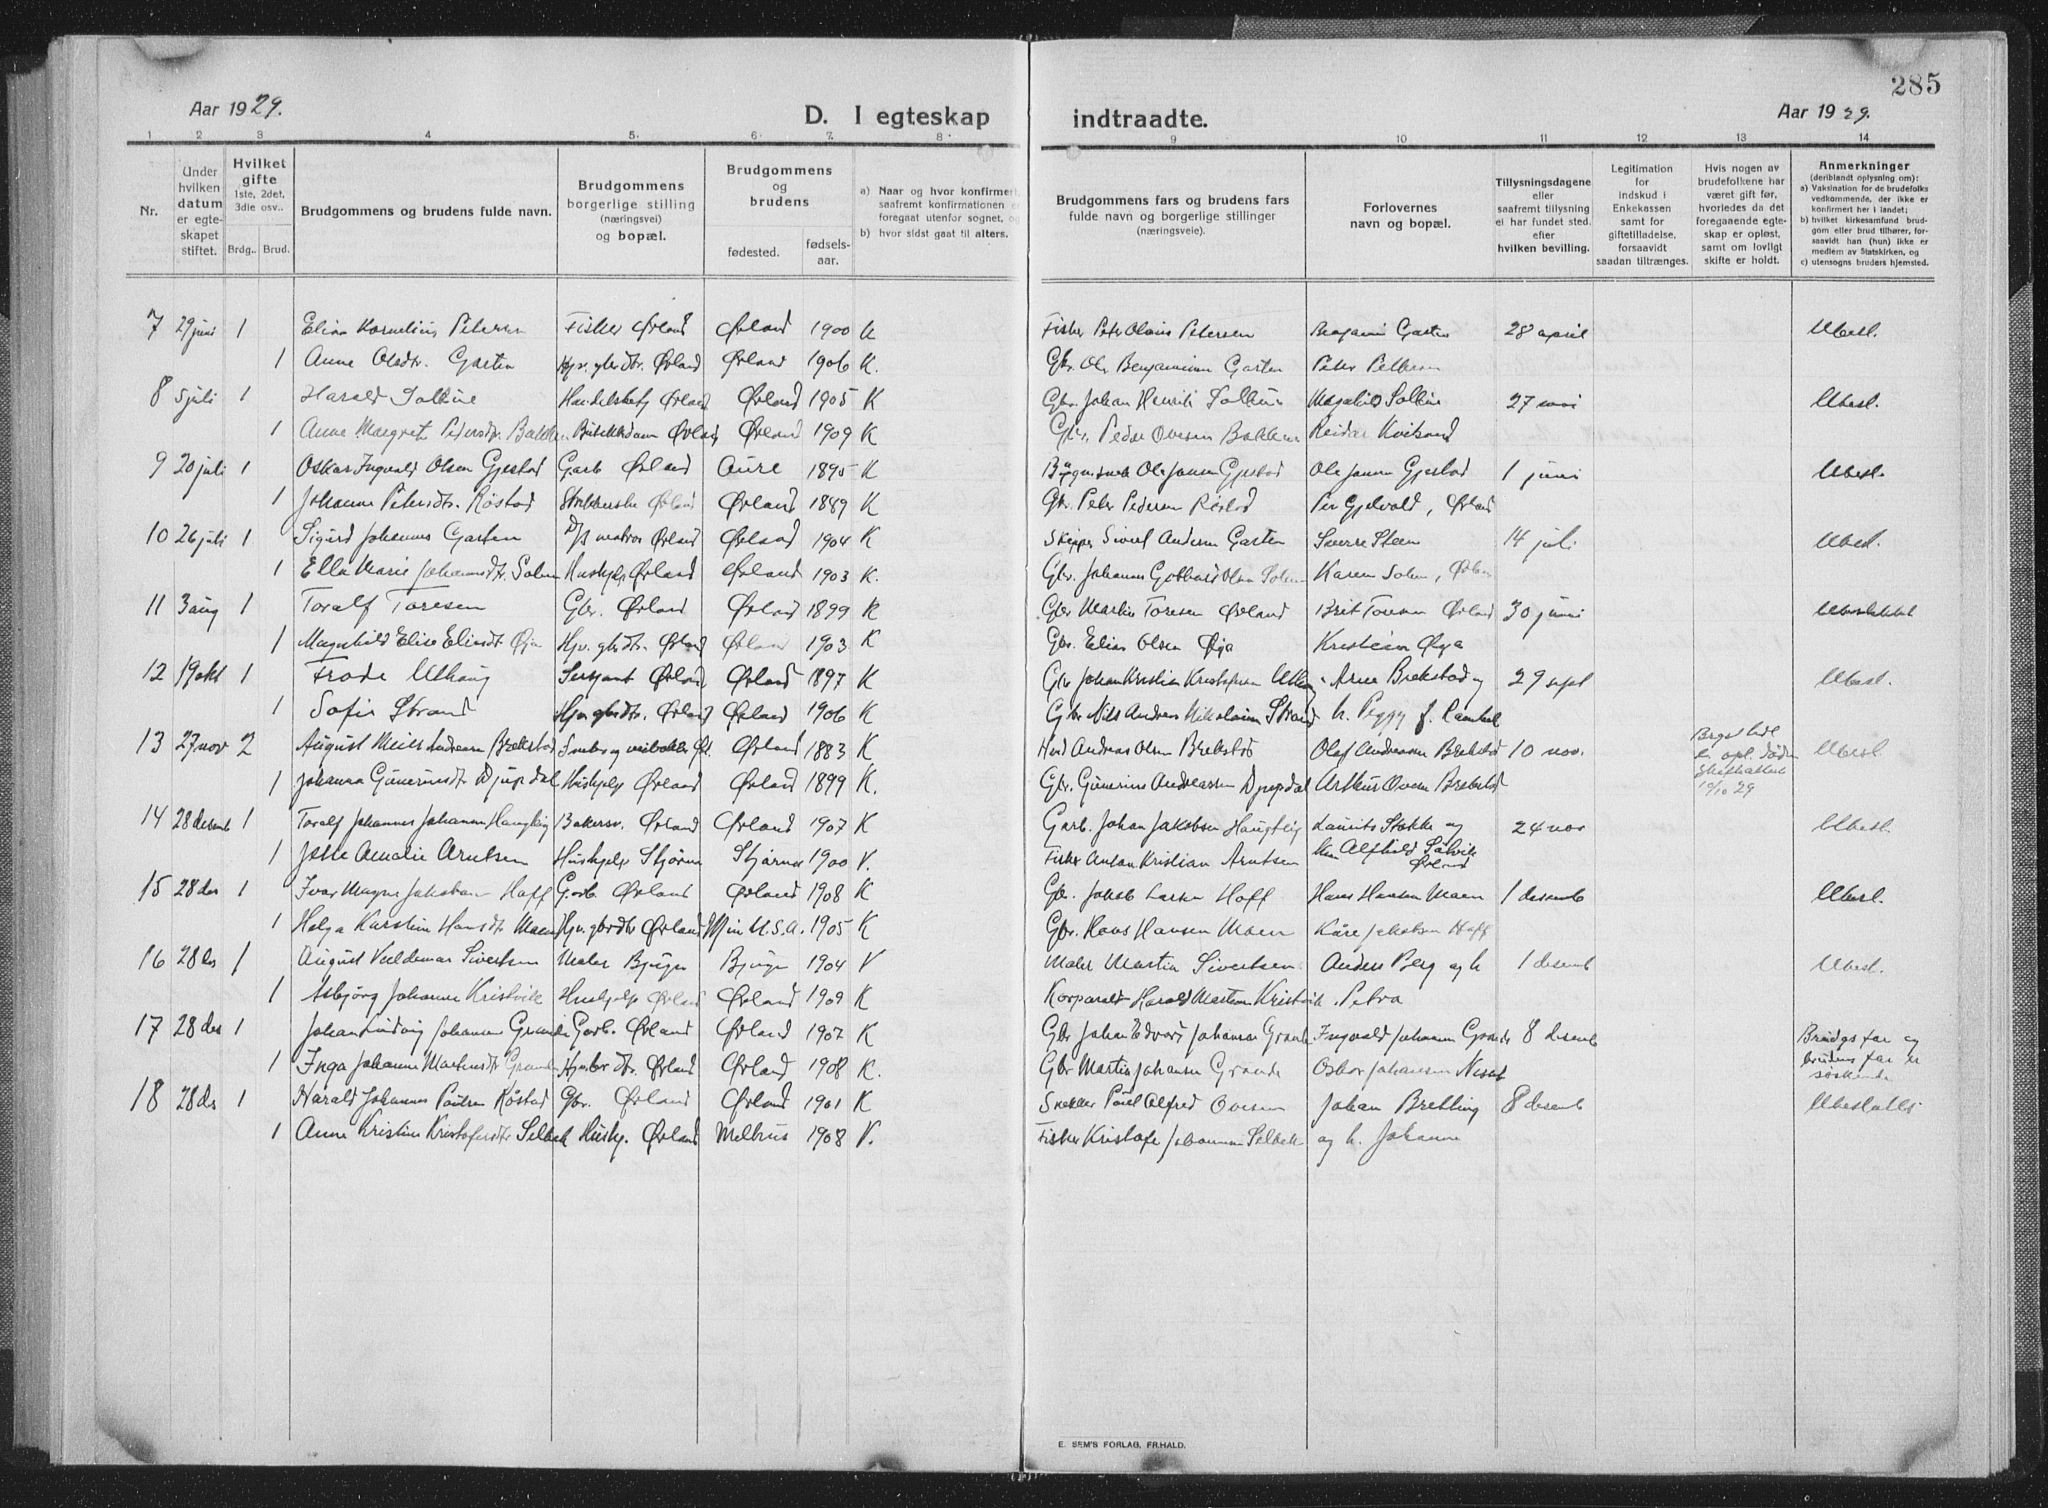 285
Aar 1929.
D. I egteskap indtraadte.
Aar 1929.
1 2 3 4 5. 6. 7. 8. 9 10 11 12 13 14
Nr.
Under hvilken datum er egteskapet stiftet.
Hvilket gifte 1ste, 2det, 3die osv..
Brdg.. Brud.
Brudgommens og brudens fulde navn.
Brudgommens borgerlige stilling (næringsvei) og bopæl.
Brudgommens og brudens
fødested. fødselsaar.
a) Naar og hvor konfirmert, saafremt konfirmationen er foregaat utenfor sognet, og
b) hvor sidst gaat til alters.
Brudgommens fars og brudens fars fulde navn og borgerlige stillinger (næringsveie).
Forlovernes navn og bopæl.
Tillysningsdagene eller saafremt tillysning ei har fundet sted. efter hvilken bevilling.
Legitimation for indskud i Enkekassen samt for giftetilladelse, forsaavidt saadan tiltrænges.
Hvis nogen av brudefolkene har været gift før, hvorledes da det foregaaende egteskap er opløst, samt om lovligt skifte er holdt.
Anmerkninger (deriblandt oplysning om):
a) Vaksination for de brudefolks vedkommende, der ikke er konfirmert her i landet;
b) hvilket kirkesamfund brudgom eller brud tilhører, forsaavidt han (hun) ikke er medlem av Statskirken, og
c) utensogns bruders hjemsted.
7 29 juni 1 Elias Kornelius Petersen Fisker Ørland Ørland 1900 K Fisker Peter Olaus Petersen Benjamin Garten 28 april Ubesl.
1 Anne Olsdtr. Garten Hjv. gbrdtr. Ørland Ørland 1906 K. Gbr. Ole Benjaminsen Garten Peter Pettersen
8 5 juli 1 Harald Sollie Ørland Ørland 1905 K Gbr. Johan Henrik 27 mai Ubesl.
1 Anne Margret Pedersdtr. Bakken Butikkdame Ørland Ørland 1909 K Gbr. Peder Ovesen Bakken Reidar Kvitsand
9 20 juli 1 Oskar Ingvald Olsen Gjestad Garb. Ørland Aure 1895 K Ole Jansen Gjestad Ole Jansen Gjestad 1 juni Ubesl.
1 Johanna Petersdtr. Røstad Ørland Ørland 1889 K Gbr. Peter Pedersen Røstad Per Gjelvold, Ørland
10 26 juli 1 Sigurd Johannes Garten matros Ørland Ørland 1904 K Skipper Sivert Andersen Garten Sverre Steen 14 juli Ubesl.
1 Ella Marie Johannsdtr. Solem Hushjelp Ørland Ørland 1903 K. Gbr. Johannes Gotthard Olsen Solem Karen Solem, Ørland
11 3 aug 1 Toralf Toresen Gbr. Ørland Ørland 1899 K Gbr Martin Toresen Ørland Brit Toresen Ørland 30 juni
1 Magnhild Elise Eliasdtr Øja Hjv. gbrdtr. Ørland Ørland 1903 K Gbr. Elias Olsen Øja Kristian Øja
12 19 okt 1 Frode Uthaug Sersjant Ørland Ørland 1897 K Gbr Johan Kristian Kristofersen Uthaug Arne Brekstad og 29 sept Ubesl.
1 Sofie Strand Hjv. gbrdtr. Ørland Ørland 1906 K Gbr Nils Andreas Nikolaisen Strand h. Peggy f.
13 27 nov 2 August Andreasen Brekstad Ørl. Ørland 1883 K Andreas Olsen Brekstad Olaf Andreasen Brekstad 10 nov. opl. død skifteattest 10/10 29 Ubesl.
1 Johanna Gunerinsdtr Djupdal Hushjelp Ørland Ørland 1899 K. Gbr. Gunerius Andreassen Djupdal Arthur Ovesen Brekstad
14 28 desemb 1 Toralf Johannes Johansen Haugtrig Bakersv. Ørland Ørland 1907 K Garb. Johan Jakobsen Haugtrig Laurits Stokke og 24 nov Ubesl.
1 Amalie Arntsen Hushjelp Stjørna Stjørna 1900 V. Fisker Anton Kristian Arntsen Alfhild Ørland
15 28 des 1 Ivar Magne Jakobsen Hoff Garb. Ørland Ørland 1908 K Gbr. Jakob Larsen Hoff Hans Hansen Moen 1 desemb Ubesl.
1 Helga Karstine Hansdtr Moen Hjv. gbrdtr Ørland U.S.A. 1905 K Gbr. Hans Hansen Moen Kåre Jakobsen Hoff
16 28 des 1 August Valdemar Sivertsen Maler Bjugn Bjugn 1904 V Maler Martin Sivertsen Anders Berg og h 1 desemb Ubesl.
1 Asbjørg Johanne Kristvik Hushjelp Ørland Ørland 1909 K Harald Kristvik. Petra
17 28 des 1 Johan Ludvig Johansen Grande Garb. Ørland Ørland 1907 K Gbr Johan Edvard Johansen Grande Ingvald Johansen Grande 8 desemb Brudgs far og brudens far er søskende
1 Inga Johanne Martinsdtr Grande Ørland Ørland 1908 K. Gbr Martin Johansen Grande Oskar Johansen
18 28 des 1 Harald Johannes Paulsen Røstad Gbr. Ørland Ørland 1901 K Snekker Paul Alfred Ovesen Johan Bretting 8 desemb
1 Anne Kristine Kristofersdtr Selbekk Hushj. Ørland Melhus 1908 V. Fisker Kristofer Johannesen Selbekk og h. Johanne
E. SEM'S FORLAG, FR.HALD.